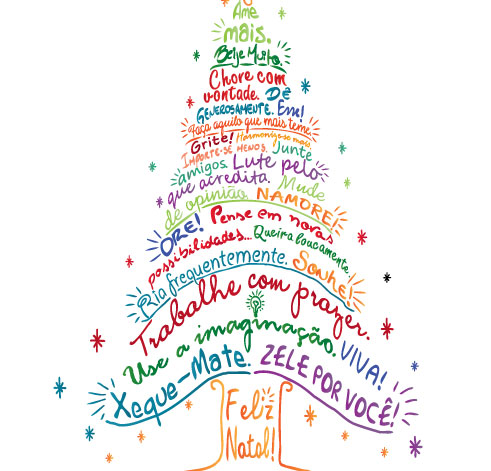 Ame
mais.
Beije Muito.
Chore com
vontade. Dê
GENEROSAMENTE. Erre!
Faça aquilo que mais teme.
GRITE! Harmonize-se mais.
IMPORTE-SE MENOS. Junte
amigos. Lute pelo
que acredita. Mude
de opinião. NAMORE!
ORE! Pense em novas
possibilidades... Queira loucamente.
Ria frequentemente. Sonhe!
Trabalhe com prazer.
Use a imaginação. VIVA!
Xeque-Mate. ZELE POR VOCÊ!
Feliz
Natal!